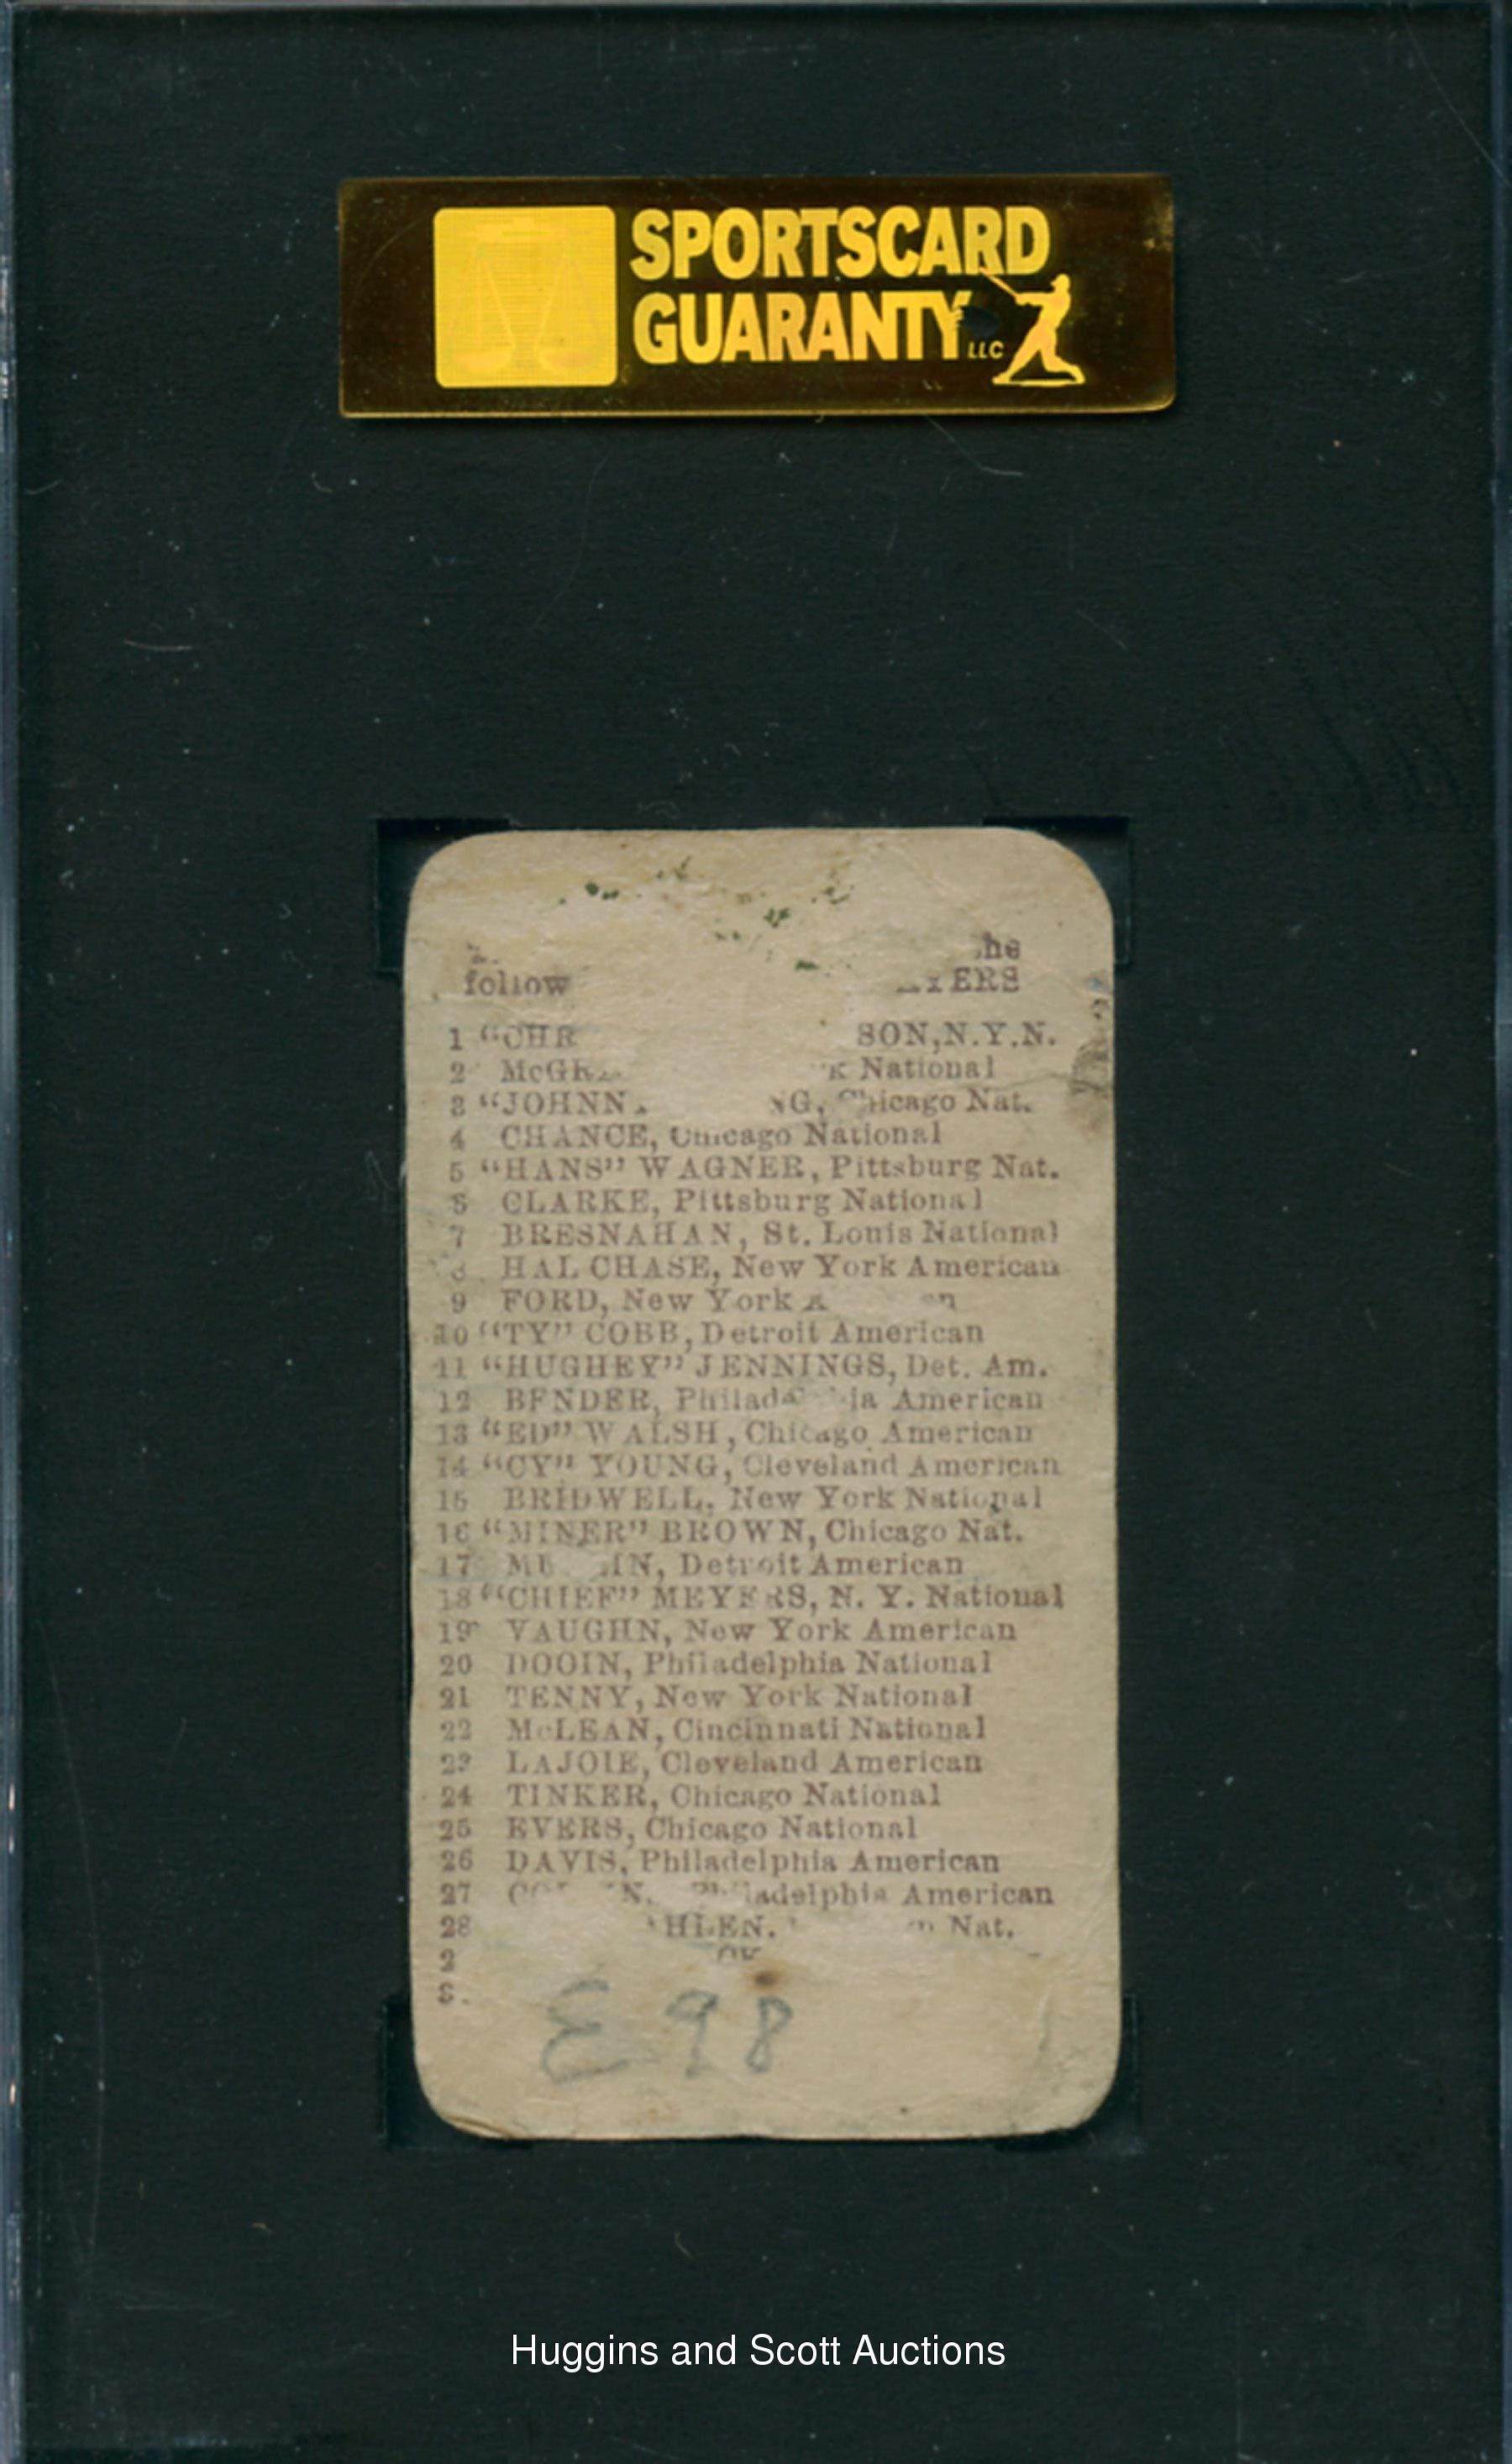 SPORTSCARD
GUARANTY LLC
follow
1 "CHR SON, N.Y.N.
2 National
3 "JOHNN Chicago Nat.
4 CHANCE, Chicago National
5 "HANS" WAGNER, Pittsburg Nat.
6 CLARKE, Pittsburg National
7 BRESNAHAN, St. Louis National
8 HAL CHASE, New York American
9 FORD, New York
10 "TY" COBB, Detroit American
11 "HUGHEY" JENNINGS, Det. Am.
12 BENDER, American
13 "ED" WALSH, Chicago American
14 "CY" YOUNG, Cleveland American
15 BRIDWELL, New York National
16 "MINER" BROWN, Chicago Nat.
17 Detroit American
18 "CHIEF" MEYERS, N. Y. National
19 VAUGHN, New York American
20 DOOIN, Philadelphia National
21 TENNY, New York National
22 McLEAN, Cincinnati National
23 LAJOIE, Cleveland American
24 TINKER, Chicago National
25 EVERS, Chicago National
26 DAVIS, Philadelphia American
27 Philadelphia American
28 Nat.
E 98
Huggins and Scott Auctions